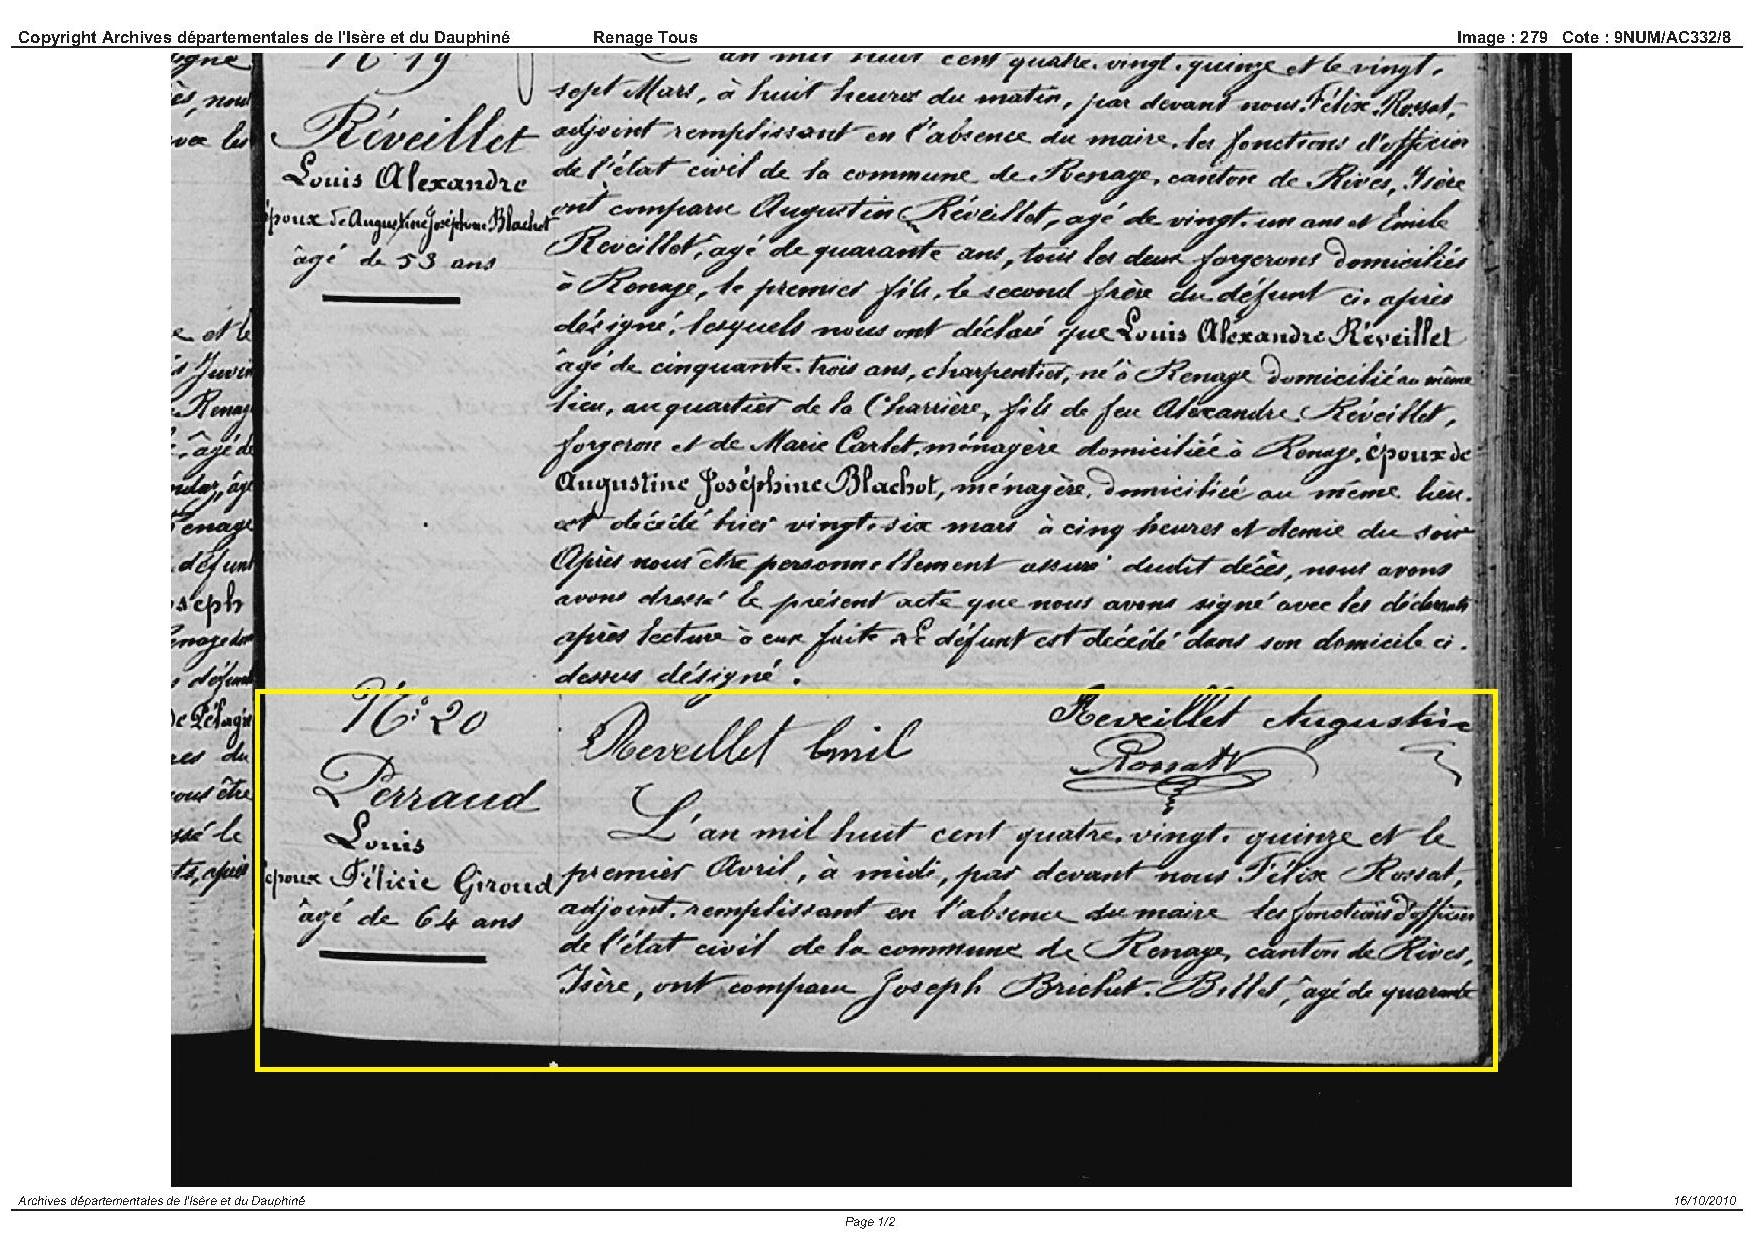 Copyright Archives départementales de l'Isère et du Dauphiné Renage Tous Image : 279 Cote : 9NUM/AC332/8
N° 19
Réveillet
Louis Alexandre
époux de Augustine Joséphine Blachot
âgé de 53 ans
an mil huit cent quatre-vingt-quinze et le vingt-
sept Mars, à huit heures du matin, par devant nous Félix Rossat,
adjoint remplissant en l'absence du maire, les fonctions d'officier
de l'état civil de la commune de Renage, canton de Rives, Isère
ont comparu Augustin Réveillet, agé de vingt-un ans et Emile
Réveillet, âgé de quarante ans, tous les deux forgerons domiciliés
à Renage, le premier fils, le second frère du défunt ci-après
désigné, lesquels nous ont déclaré que Louis Alexandre Réveillet
âgé de cinquante-trois ans, charpentier, né à Renage domicilié au même
lieu, au quartier de la Charrière, fils de feu Alexandre Réveillet,
forgeron et de Marie Carlet, ménagère domiciliée à Renage, époux de
Augustine Joséphine Blachot, ménagère, domiciliée au même lieu.
est décédé hier vingt-six mars à cinq heures et demie du soir
Après nous être personnellement assuré dudit décès, nous avons
avons dressé le présent acte que nous avons signé avec les déclarants
après lecture à eux faite Le défunt est décédé dans son domicile ci-
dessus désigné.
Reveillet Emil
Reveillet Augustin
Rossat
N° 20
Perraud
Louis
époux Félicie Giroud
âgé de 64 ans
L'an mil huit cent quatre-vingt-quinze et le
premier Avril, à midi, par devant nous Félix Rossat,
adjoint, remplissant en l'absence du maire les fonctions d'officier
de l'état civil de la commune de Renage, canton de Rives,
Isère, ont comparu Joseph Brichet-Billet, agé de quarante
Archives départementales de l'Isère et du Dauphiné 16/10/2010
Page 1/2